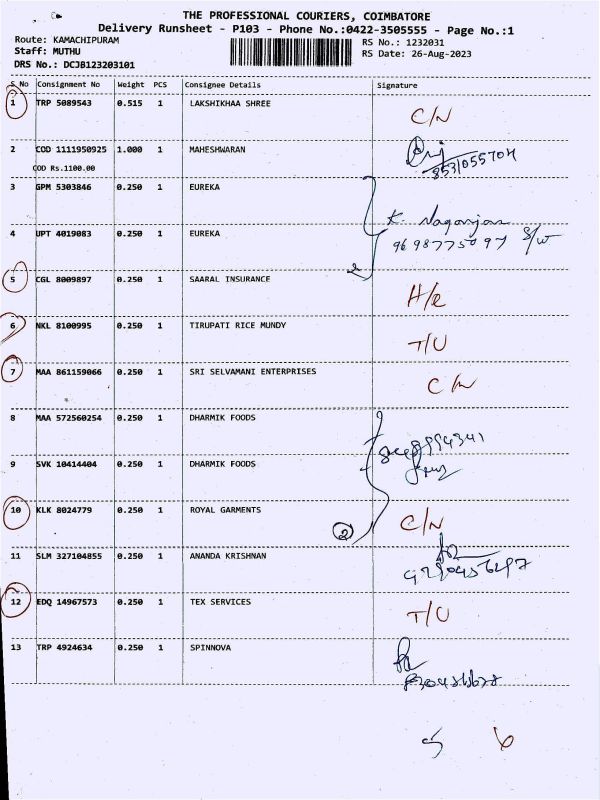 THE PROFESSIONAL COURIERS, COIMBATORE
Delivery Runsheet - P103 - Phone No.:0422-3505555 - Page No.:1
Route: KAMACHIPURAM RS No.: 1232031
Staff: MUTHU RS Date: 26-Aug-2023
DRS No.: DCJB123203101
S No Consignment No Weight PCS Consignee Details Signature
1 TRP 5089543 0.515 1 LAKSHIKHAA SHREE C/N
2 COD 1111950925 1.000 1 MAHESHWARAN
COD Rs.1100.00 8531055704
3 GPM 5303846 0.250 1 EUREKA
K. Nagarajan
4 UPT 4019083 0.250 1 EUREKA 9698775097 S/W
2
5 CGL 8009897 0.250 1 SAARAL INSURANCE H/e
6 NKL 8100995 0.250 1 TIRUPATI RICE MUNDY T/U
7 MAA 861159066 0.250 1 SRI SELVAMANI ENTERPRISES C/N
8 MAA 572560254 0.250 1 DHARMIK FOODS
9 SVK 10414404 0.250 1 DHARMIK FOODS
10 KLK 8024779 0.250 1 ROYAL GARMENTS C/N
2
11 SLM 327104855 0.250 1 ANANDA KRISHNAN
12 EDQ 14967573 0.250 1 TEX SERVICES T/U
13 TRP 4924634 0.250 1 SPINNOVA
5 6